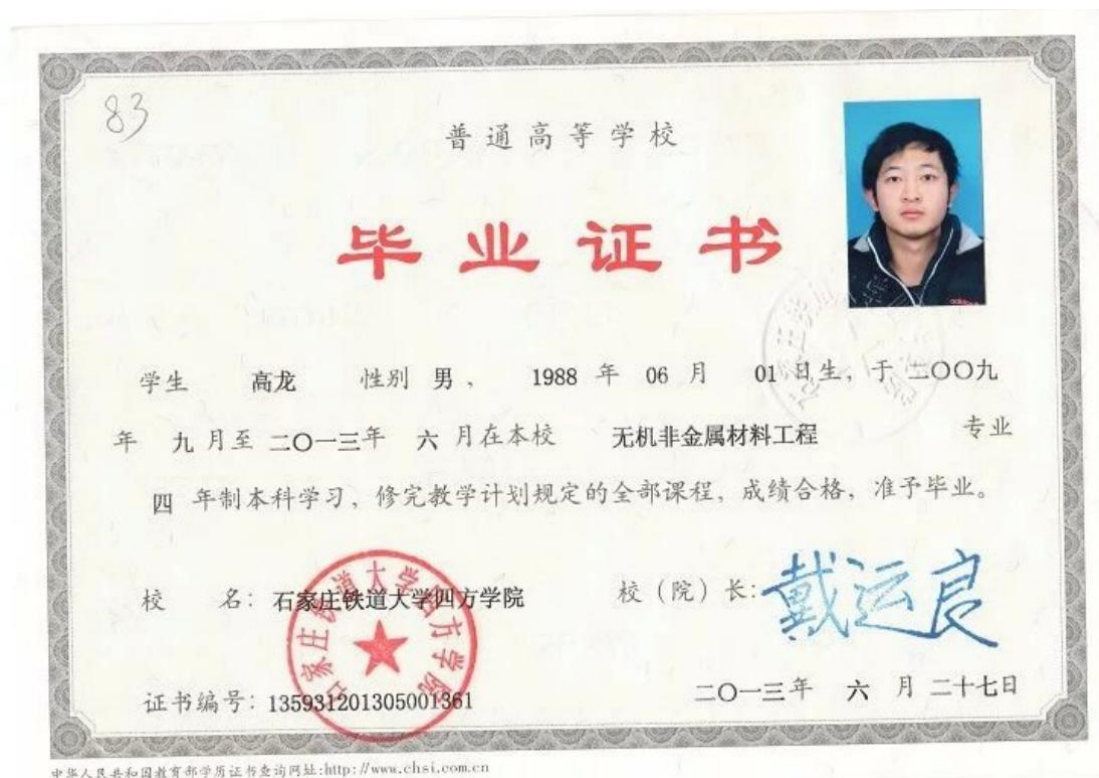 83
普通高等学校
毕业证书
学生 高龙 性别 男， 1988 年 06 月 01 日生，于 二〇〇九
年 九 月至 二〇一三年 六 月在本校 无机非金属材料工程 专业
四 年制本科学习，修完教学计划规定的全部课程，成绩合格，准予毕业。
校 名：石家庄铁道大学四方学院 校（院）长：戴运良
石家庄铁道大学四方学院
证书编号：135931201305001361 二〇一三年 六 月 二十七日
中华人民共和国教育部学历证书查询网址:http://www.chsi.com.cn